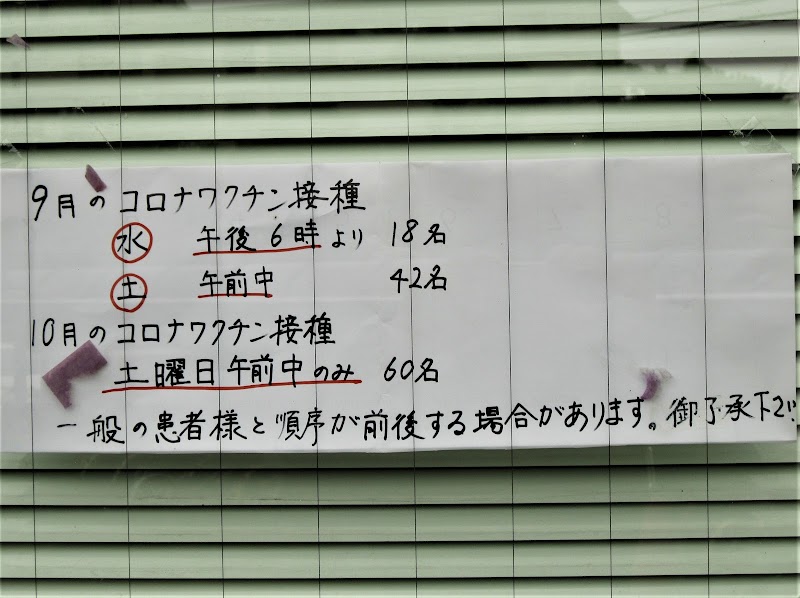 9月のコロナワクチン接種
水 午後6時より 18名
土 午前中 42名
10月のコロナワクチン接種
土曜日午前中のみ 60名
一般の患者様と順序が前後する場合があります。御了承下さい